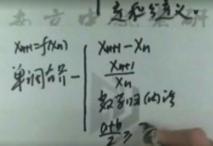 定积分定义.
xn+1=f(xn)
单调有界
xn+1 - xn
xn+1/xn
数学归纳法
a+b/2 ≥